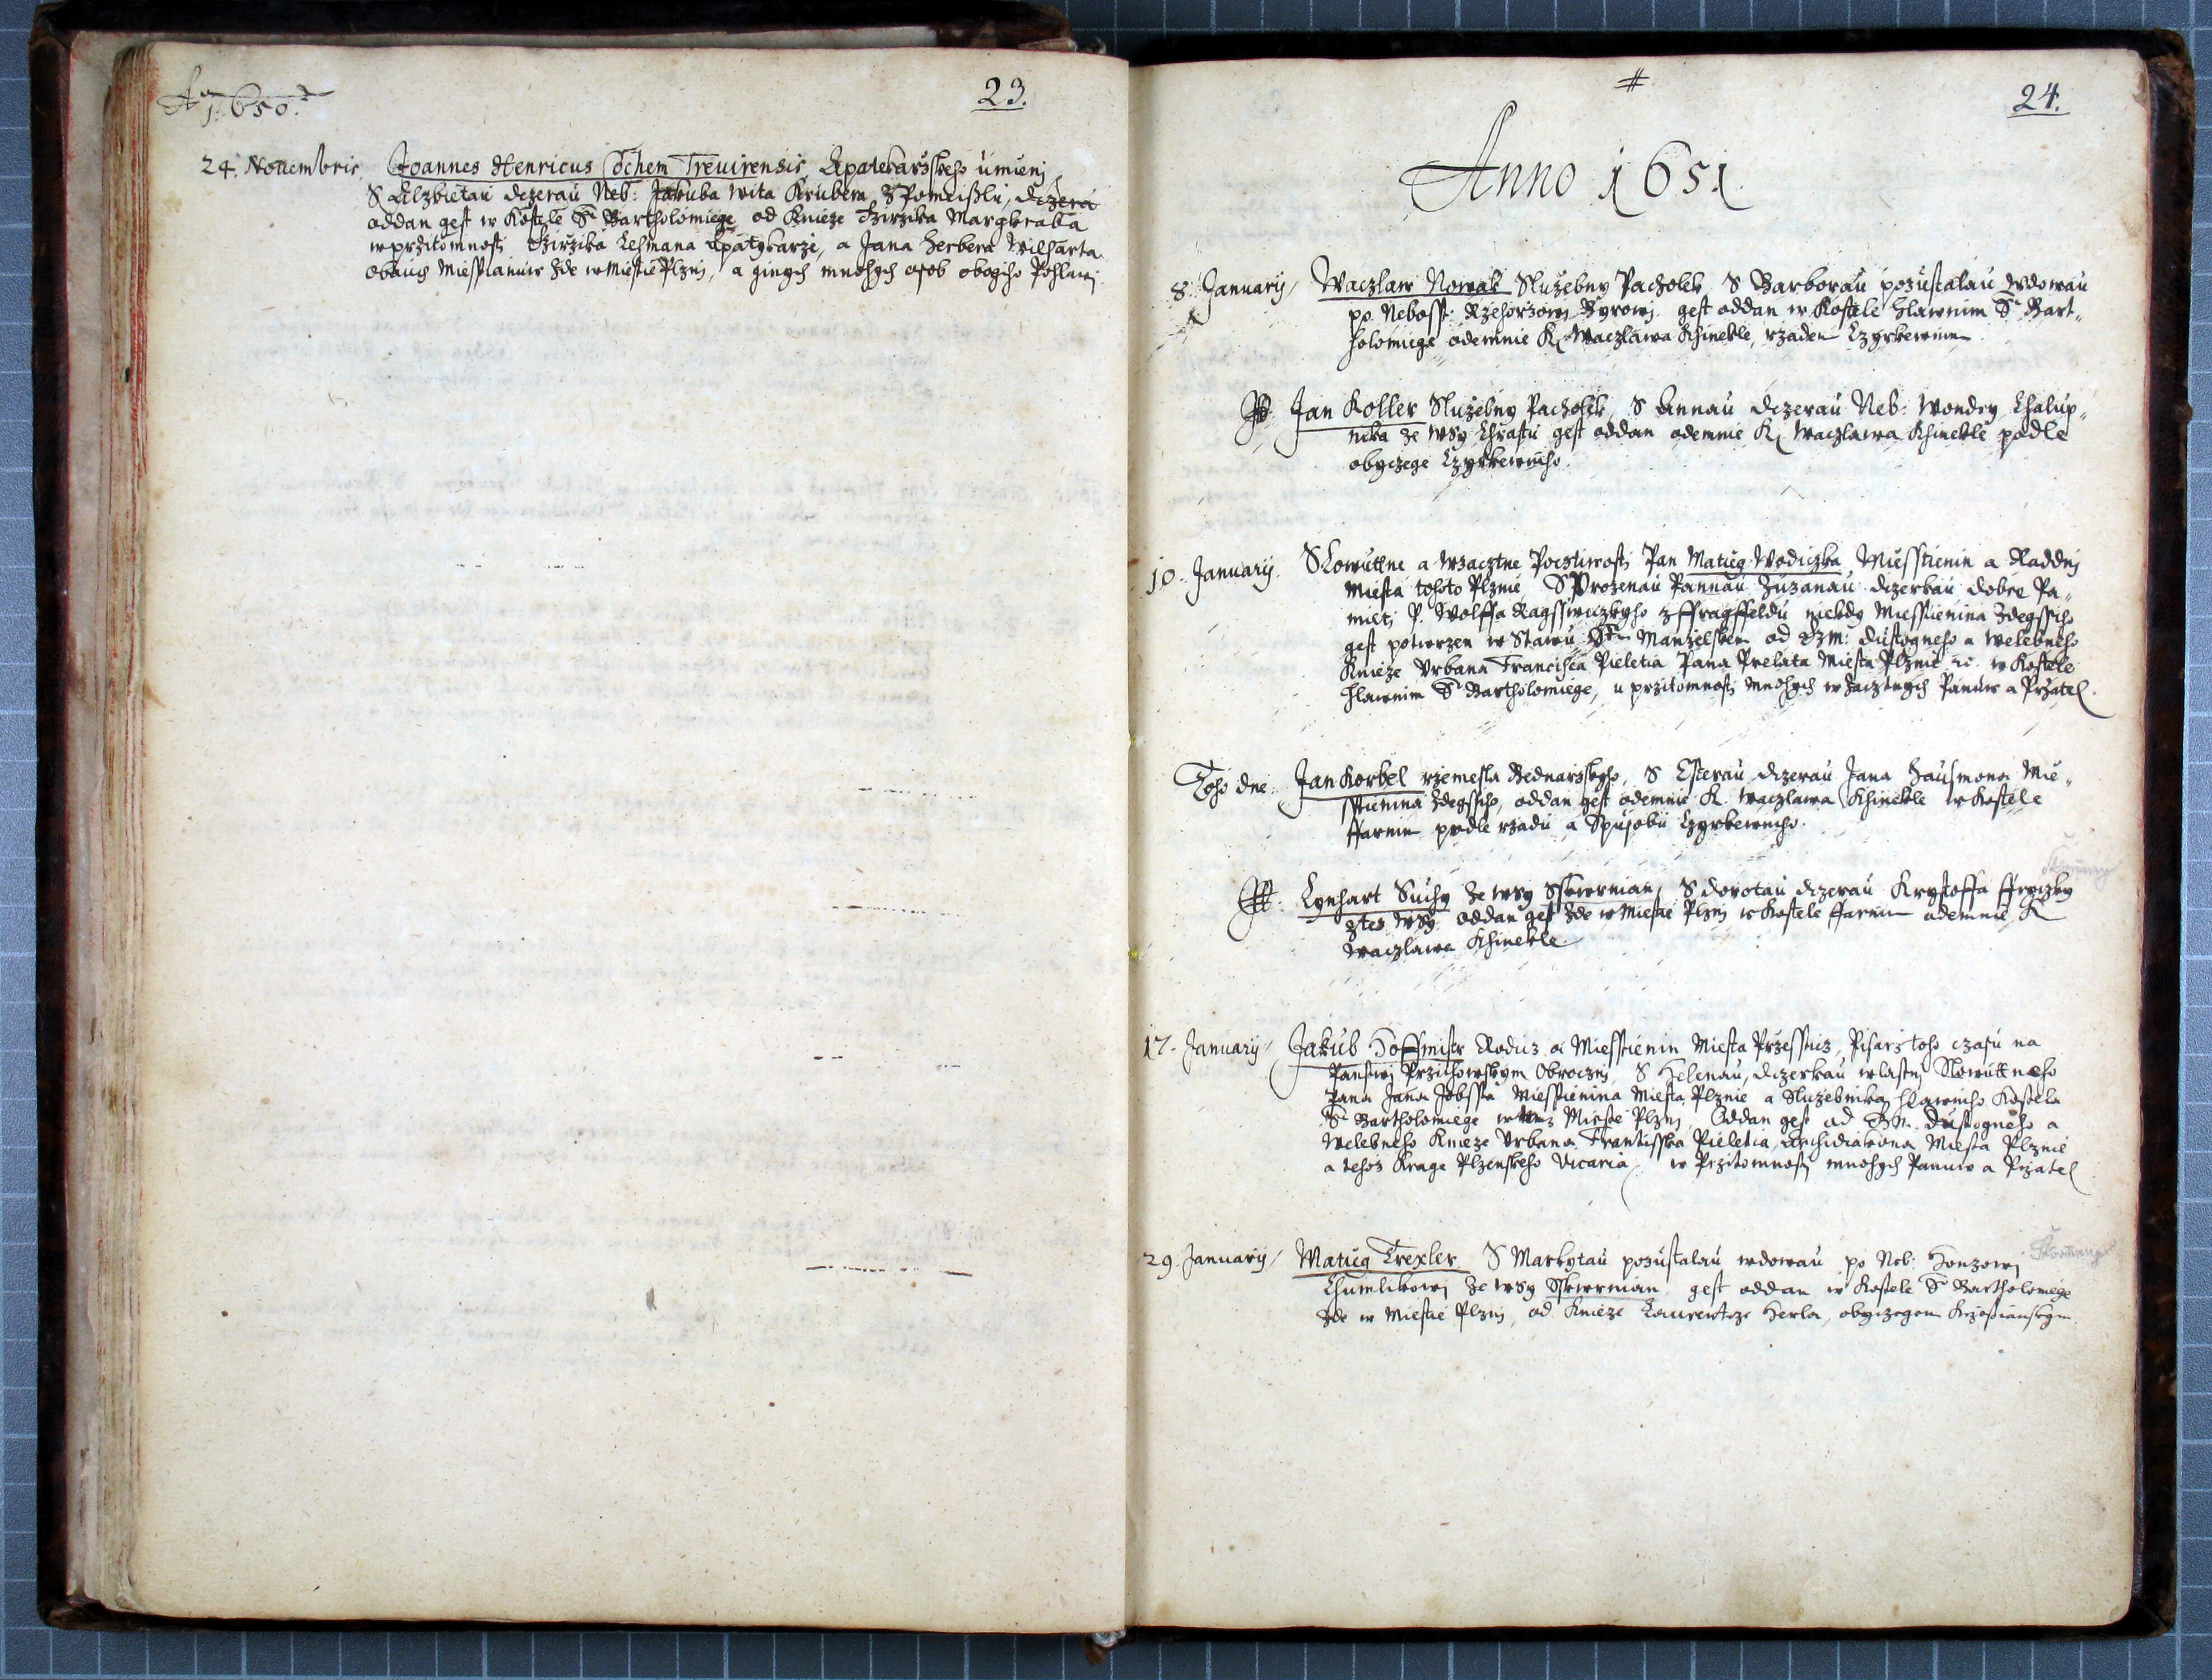 Aº 1650.
23.
24. Nouembris. Joannes Henricus Cochem Treuirensis, Apatekarżskeho umienj
S Elzbietau dczerau Neb: Jakuba Wita Krubera z Pomeißlu, dczera
oddan gest w Kostele S. Bartholomiege od Knieze Girzika Margkraba
w przitomnosti Girzika Lehmana Apatykarze, a Jana Herbera Wilharta
obauch Miesstianuw zde w Miestie Plzni, a ginych mnohych osob obogiho Pohlawj.
#
24.
Anno 1651.
8. January Waczlaw Nowak Služebny Pacholek, S Barborau pozustalau wdowau
po Nebosst: Rzehorzowj Byrowj gest oddan w Kostele hlawnim S. Bart„
holomiege odemnie K. Waczlawa Khinekle, rzadem Czyrkewnim.
Jan Koller Služebny Pacholek, S Annau dczerau Neb: Wondry Chalup„
nika ze wsy Chrastu gest oddan odemnie K. Waczlawa Khinekle podle
obyczege Czyrkewniho.
10. January. Slowutne a wzactne Pocztiwosti Pan Matieg Wodiczka Miesstienin a Raddnj
Miesta tohoto Plznie, S Vrozenau Pannau Zuzanau dczerkau dobre Pa„
mieti P. Wolffa Ragsswiczkyho z ffragffeldu niekdy Miesstienina Zdegssiho
gest potwrzen w Stawu Sm Manželskem od Gm: dustogneho a Welebneho
Knieze Vrbana Francisca Pieletia Pana Prelata Miesta Plznie &c. w Kostele
hlawnim S. Bartholomiege, u przitomnosti mnohych wzacztnych Panuw a Přzatel.
Toho dne: Jan Korbel rzemesla Bednarskyho, S Esterau dczerau Jana Hausmana Mie„
sstienina Zdegssiho, oddan gest odemnie K. Waczlawa Khinekle w Kostele
ffarnim podle rzadu a Spusobu Czyrkewniho.
Lynhart Suchy ze wsy Sskwrnian, S dorotau dczerau Krystoffa ffryczky
z tez wsy oddan gest zde w Miestie Plzni w Kostele ffarnim odemnie K
Waczlawa Khinekle.
17. January Jakub Hoffmistr Rodicz a Miesstienin Miesta Przessticz, Pisarz toho czasu na
Panstwj Przichowskym Obrocznj, S Helenau, dczerkau wlastnj Slowuttneho
Pana Jana Jobssta Miesstienina Miesta Plznie a Služebnika hlawniho Kostela
S. Bartholomiege w temž Miestie Plzni, Oddan gest od Gm. Dustogneho a
Welebneho Knieze Vrbana Frantisska Pieletia, Archidiakona Miesta Plznie
a tehoz Krage Plzenskeho Vicaria, w Przitomnosti mnohych Panuw a Przatel
29. January Matieg Trexler S Markytau pozustalau wdowau po Neb: Honzowj
Chumlikowj ze wsy Sskwrnian, gest oddan w Kostele S. Bartholomiege
zde w Miestie Plzni, od Knieze Laurentze Herla, obyczegem Krzestianskym.